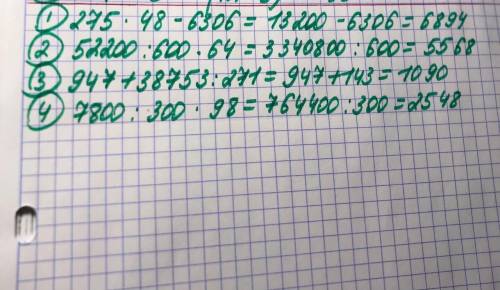 ① 275 · 48 - 6306 = 13200 - 6306 = 6894
② 52200 : 600 · 64 = 3340800 : 600 = 5568
③ 947 + 38753 : 271 = 947 + 143 = 1090
④ 7800 : 300 · 98 = 764400 : 300 = 2548